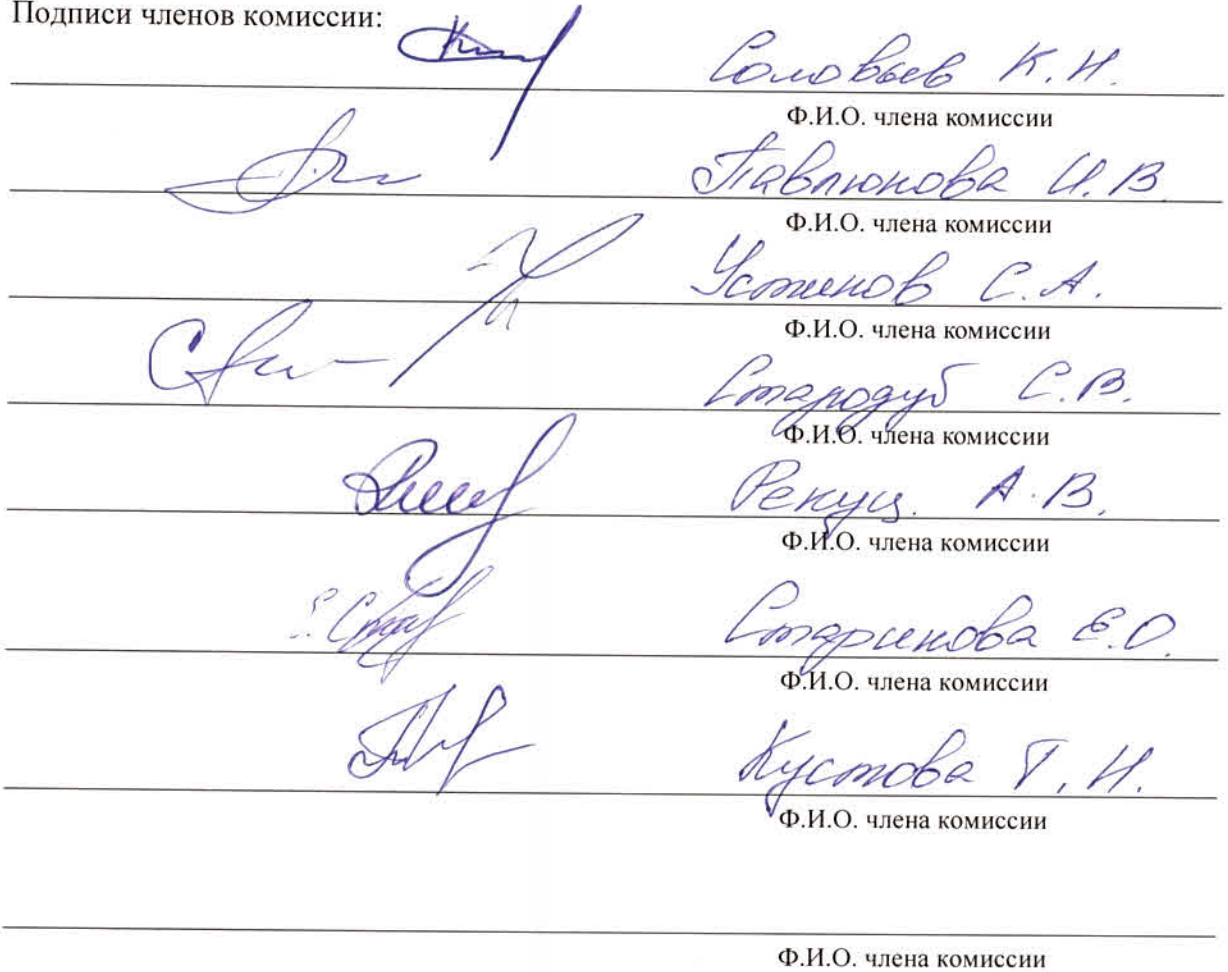 Подписи членов комиссии:
Соловьев К. Н.
Ф.И.О. члена комиссии
Павлюнова И. В.
Ф.И.О. члена комиссии
Устинов С. А.
Ф.И.О. члена комиссии
Стародуб С. В.
Ф.И.О. члена комиссии
Рекуц. А. В.
Ф.И.О. члена комиссии
Старикова Е. О.
Ф.И.О. члена комиссии
Кустова Т. Н.
Ф.И.О. члена комиссии
Ф.И.О. члена комиссии